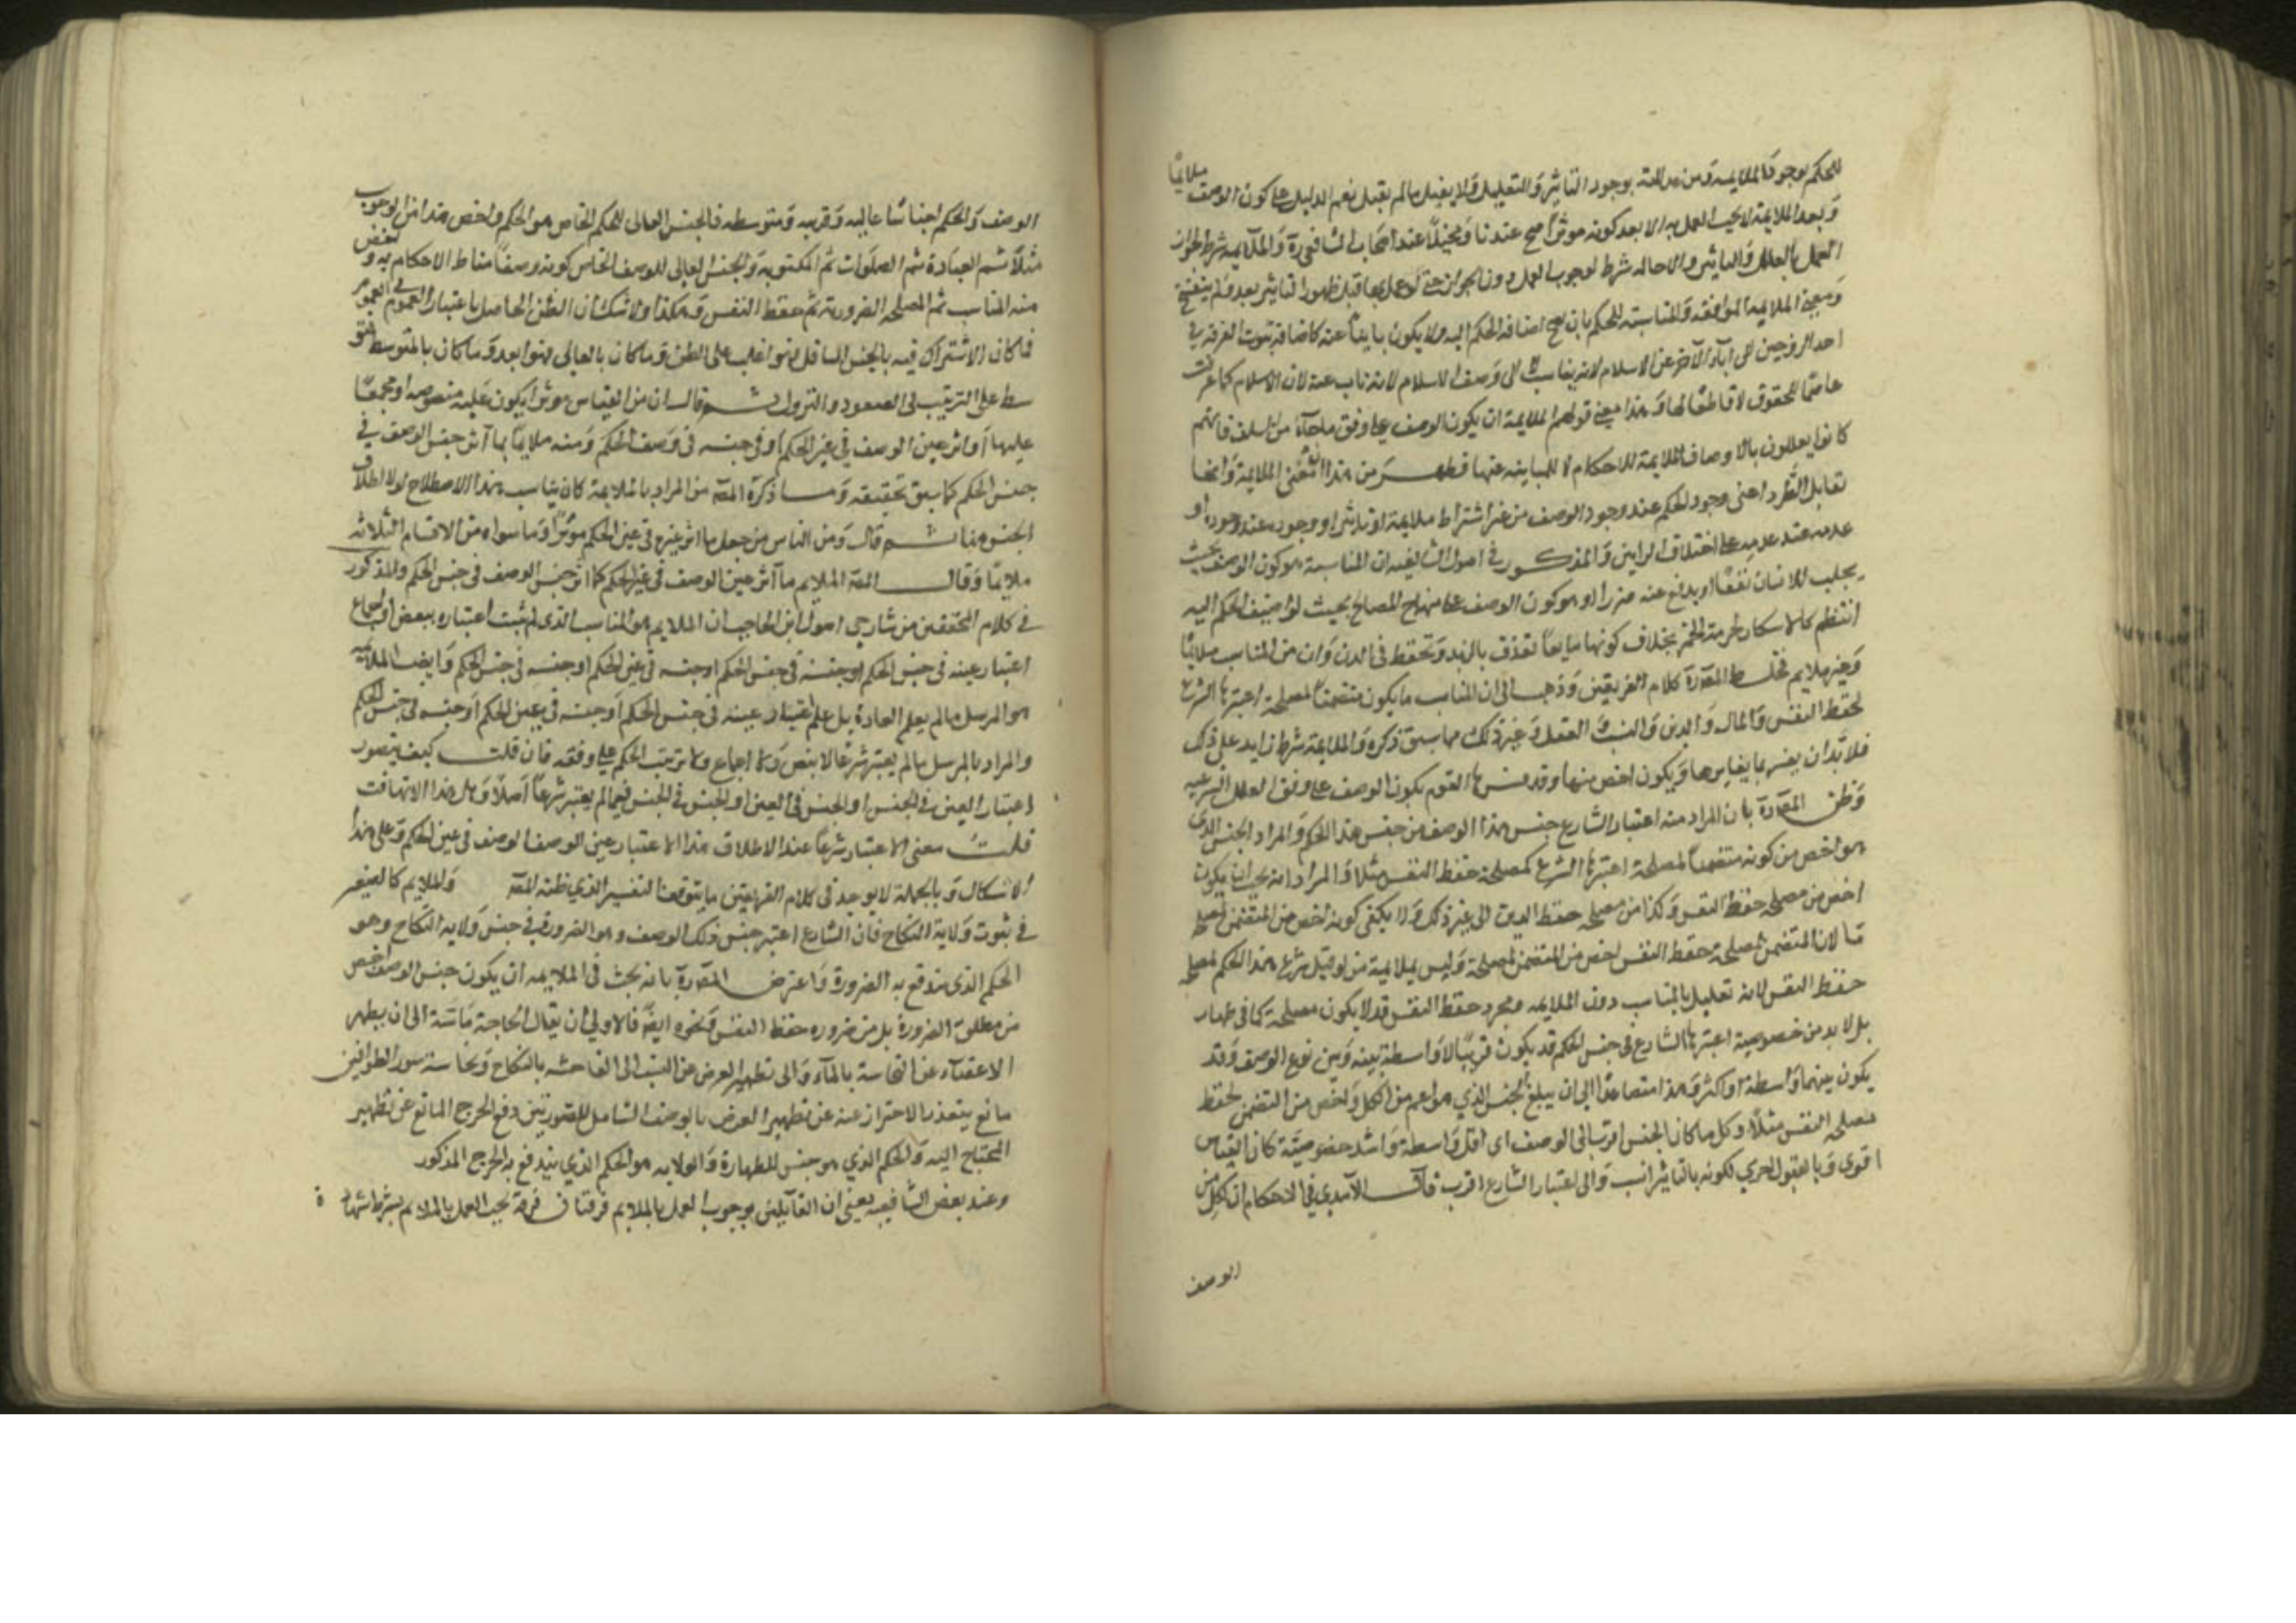 للحكم لوجود الملايمة ومن عدالته بوجود التاثير والتعليل لا يقبل ما لم يقم الدليل على كون الوصف ملايمًا
وبعد الملايمة لا يجب العمل به الا بعد كونه موثرا عندنا ومخيلا عند اصحاب الشافعي رة والملايمة شرط لجواز
العمل بالعلل والتاثير والاخالة شرط لوجوب العمل دون الجواز حتى لو عمل بها قبل ظهور التاثير بعد ولم ينفسخ
ومعنى الملايمة الموافقة والمناسبة للحكم بان يصح اضافة الحكم اليه ولا يكون نابيًا عنه كاضافة ثبوت الفرقة في
احد الزوجين الى اباء الآخر عن الاسلام لانه يناسبه لا الى وصف الاسلام لانه ناب عنه لان الاسلام كما عرفت
عاصمًا للحقوق لا قاطعًا لها وهذا معنى قولهم الملايمة ان يكون الوصف على وفق ما جاء من السلف فانهم
كانوا يعللون بالاوصاف الملايمة للاحكام لا المباينة عنها فظهر من هذا معنى الملايمة وانها
تقابل الطرد اعنى وجود الحكم عند وجود الوصف من غير اشتراط ملايمة او تاثير او وجوده عند وجوده او
عدمه عند عدمه على اختلاف الرايين والمذكور في اصول الشافعية ان المناسبة هو كون الوصف بحيث
يجلب للانسان نفعًا او يدفع عنه ضررا او هو كون الوصف على منهاج المصالح بحيث لو اضيف الحكم اليه
انتظم كالاسكار لحرمة الخمر بخلاف كونها مايعا تقذف بالزبد وتحفظ في الدن وان من المناسب ملايمًا
وغير ملايم فخلط المص رة كلام الفريقين وذهب الى ان المناسب ما يكون متضمنا لمصلحة اعتبرها الشرع
لحفظ النفس والمال والدين والنسب والعقل وغير ذلك مما سبق ذكره والملايمة شرط زايد على ذلك
فلا بد ان يفسر بما يغايرها ويكون اخص منها وقد فسرها القوم بكون الوصف على وفق العلل الشرعيه
وظن المص رة بان المراد منه اعتبار الشارع جنس هذا الوصف من جنس هذا الحكم والمراد الجنس الذي
هو اخص من كونه متضمنا لمصلحة اعتبرها الشرع كمصلحة حفظ النفس مثلا والمراد انه يجب ان يكون
اخص من مصلحة حفظ النفس وكذا من مصلحة حفظ الدين الى غير ذلك ولا يكفى كونه اخص من المتضمن لمصلحة
ما لان المتضمن لمصلحة حفظ النفس اخص من المتضمن لمصلحة وليس بملايمة من لو قيل شرع هذا الحكم لمصلحة
حفظ النفس لانه تعليل بالمناسب دون الملايمة ومجرد حفظ النفس قد لا يكون مصلحة كما في
بل لا بد من خصوصية اعتبرها الشارع في جنس الحكم قد يكون قريبًا لا واسطة بينه وبين نوع الوصف وقد
يكون بينهما واسطة او اكثر وهذا متصاعدًا الى ان يبلغ الجنس الذي هو اعم من الكل واخص من المتضمن لحفظ
مصلحة النفس مثلا وكل ما كان الجنس اقرب الى الوصف اى اقل واسطة واشد خصوصيّة كان القياس
اقوى وبالقبول احري لكونه بالتاثير انسب والى اعتبار الشارع اقرب قال الآمدي في الاحكام ان لكل من
الوصف
الوصف والحكم اجناسًا عالية وقريبة ومتوسطة فالجنس العالى للحكم الخاص هو الحكم واخص منه الوجوب
مثلا ثم العبادة ثم الصلوات ثم المكتوبة والجنس العالى للوصف الخاص كونه وصفًا مناط الاحكام به واخص
منه المناسب ثم المصلحة الضرورية ثم حفظ النفس وهكذا ولا شك ان الظن الحاصل باعتبار العموم في العموم
فما كان الاشتراك فيه بالجنس السافل فهو اغلب على الظن وما كان بالعالى فهو ابعد وما كان بالمتوسط فمتو
سط على الترتيب فى الصعود والنزول ثم قال ان من القياس موثرا يكون علته منصوصه او مجمعًا
عليها او اثر عين الوصف في عين الحكم او في جنسه في وصف الحكم ومنه ملايمًا بما آثر جنس الوصف في
جنس الحكم كما سبق تحقيقه وما ذكره المص من المراد بالملايمة كان يناسب هذا الاصطلاح لولا اطلاق
الجنس هنا ثم قال ومن الناس من جعل ما اثر عينه في عين الحكم موثرًا وما سواه من الاقسام الثلاثه
ملايمًا وقال المص الملايم ما آثر عين الوصف في عين الحكم كما اثر جنس الوصف في جنس الحكم والمذكور
في كلام المحققين من شارحي اصول ابن الحاجب ان الملايم هو المناسب الذى لم يثبت اعتباره بنص او اجماع
اعتبار عينه في جنس الحكم او جنسه في جنس الحكم او جنسه في عين الحكم او جنسه في جنس الحكم وايضا الملايمة
هو المرسل ما لم يعلم الغاؤه بل علم اعتبار عينه في جنس الحكم او جنسه في عين الحكم او جنسه في جنس الحكم
والمراد بالمرسل ما لم يعتبر شرعًا لا بنص ولا اجماع ولا ترتيب الحكم على وفقه فان قلت كيف يتصور
اعتبار العين في الجنس او الجنس في العين او الجنس في الجنس فيما لم يعتبر شرعًا اصلا وهل هذا الا تهافت
قلت معنى الاعتبار شرعًا عند الاطلاق هذا الاعتبار عين الوصف الوصف في عين الحكم وعلى هذا
الاشكال وبالجملة لا يوجد في كلام الفريقين ما يوافق هذا التفسير الذي ظنه المص والملايم كالصغر
في ثبوت ولاية النكاح فان الشارع اعتبر جنس ذلك الوصف وهو الضرورة في جنس ولاية النكاح وهو
الحكم الذى يندفع به الضرورة واعترض المص رة بانه يجب في الملايمه ان يكون جنس الوصف اخص
من مطلق الضرورة بل من ضروره حفظ النفس ونحوه ايضًا فالاولى ان يقال الحاجة ماسّة الى ان يطهر
الاعضاء عن النجاسة بالماء والى تطهير العرض عن النسب الى الفاحشه بالنكاح ونجاسة سور الطوافين
مانع يتعذر الاحتراز عنه عن تطهير العرض بالوصف الشامل للصورتين دفع الحرج المانع عن تطهير
المحتاج اليه والحكم الذي هو جنس للطهارة والولايه هو الحكم الذي يندفع به الحرج المذكور
وعند بعض الشافعيه يعنى ان القايلين بوجوب العمل بالملايم فرقتان فرقة تجب العمل بالملايم بشرط شهادة